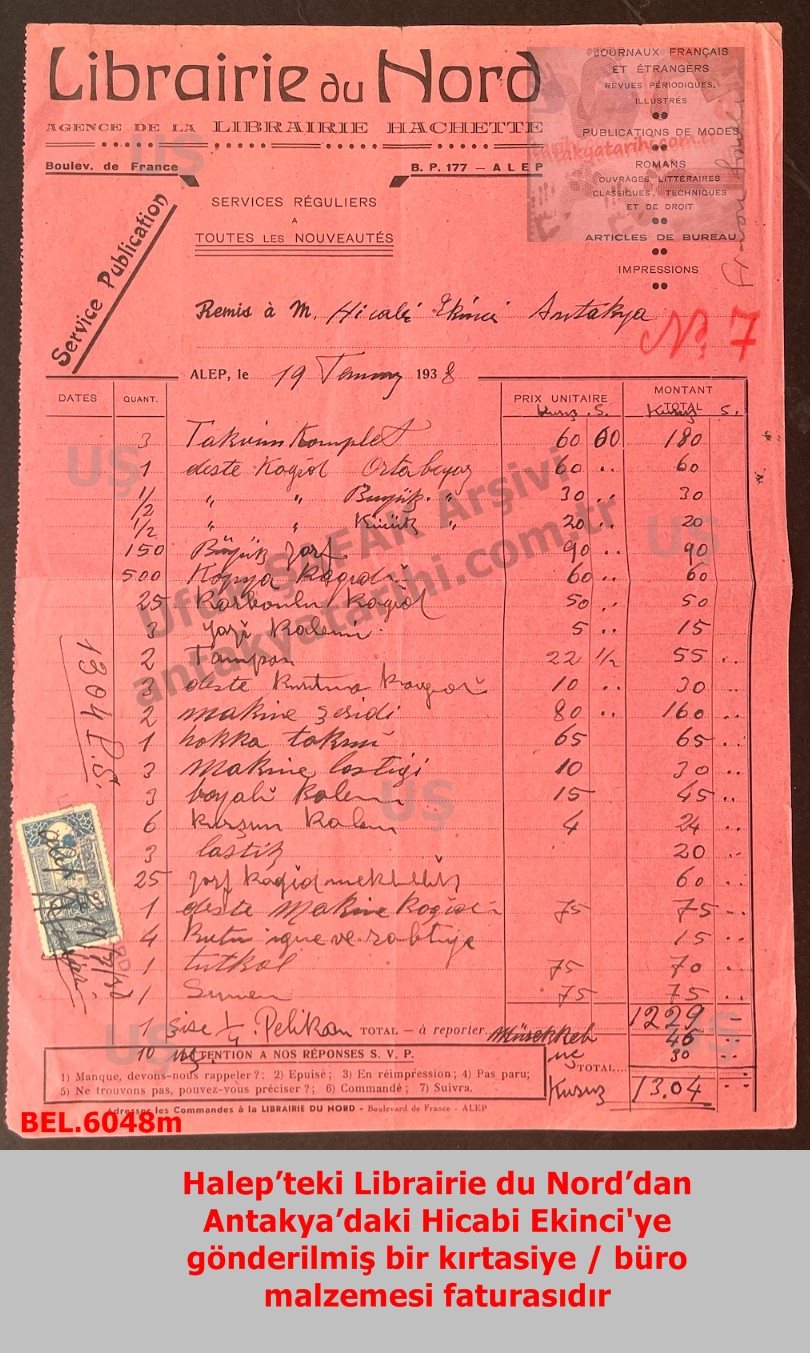 Librairie du Nord
AGENCE DE LA LIBRAIRIE HACHETTE
Boulev. de France B. P. 177 – ALEP
JOURNAUX FRANÇAIS
ET ÉTRANGERS
REVUES PÉRIODIQUES,
ILLUSTRÉS
PUBLICATIONS DE MODES
antakyatarihi.com.tr
ROMANS
OUVRAGES, LITTÉRAIRES
CLASSIQUES, TECHNIQUES
ET DE DROIT
ARTICLES DE BUREAU
IMPRESSIONS
SERVICES RÉGULIERS
A
TOUTES LES NOUVEAUTÉS
Service Publication
Remis à M. Hicabi Ekinci Antakya
No. 7
ALEP, le 19 Temmuz 1938
DATES QUANT. PRIX UNITAIRE MONTANT TOTAL
Kuruş S. Kuruş S.
3 Takvim Komple 60 00 180
1 deste Kağıd Orta beyaz 60 .. 60
1/2 " " Büyük " 30 .. 30
1/2 " " Küçük " 20 .. 20
150 Büyük zarf 90 .. 90
500 Kopya Kağıdı 60 .. 60
25 Karbonlu Kağıd 50 .. 50
3 yazı Kalem 5 .. 15
2 Tampon 22 1/2 55 ..
3 deste Kurutma Kağıdı 10 .. 30
2 makine şeridi 80 .. 160 ..
1 hokka takımı 65 65 ..
3 Makine lastiği 10 30 ..
3 boyalı Kalem 15 45 ..
6 Kurşun Kalem 4 24 ..
3 lastik 20 ..
25 zarf Kağıd 60 ..
1 deste Makine Kağıdı 75 75 ..
4 Kutu iğne ve raptiye 15 ..
1 tutkal 75 70 ..
1 Sünen 75 75 ..
1229
1 şişe 1/4 Pelikan TOTAL — à reporter Mürekkeb
10 uç 30
ATTENTION A NOS RÉPONSES S. V. P.
1) Manque, devons-nous rappeler ?; 2) Epuisé ; 3) En réimpression; 4) Pas paru;
5) Ne trouvons pas, pouvez-vous préciser ?; 6) Commandé ; 7) Suivra.
TOTAL
Kuruş 13.04
Adresser les Commandes à la LIBRAIRIE DU NORD - Boulevard de France - ALEP
1304 P.S.
UŞ
Ufuk ŞAFAK Arşivi
antakyatarihi.com.tr
BEL.6048m
Halep’teki Librairie du Nord’dan
Antakya’daki Hicabi Ekinci'ye
gönderilmiş bir kırtasiye / büro
malzemesi faturasıdır